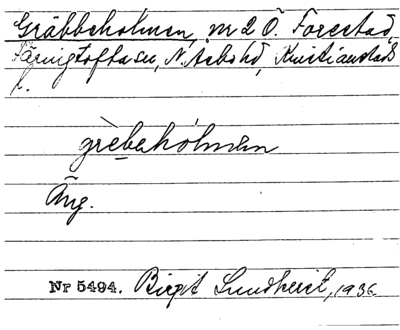 Gräbbeholmen, m 2 Ö. Forestad,
Färingtofta sn, N. Åsbo hd, Kristianstads
l.
grèbehólmen
Äng.
Nr 5494. Birgit Lundkvist, 1936.